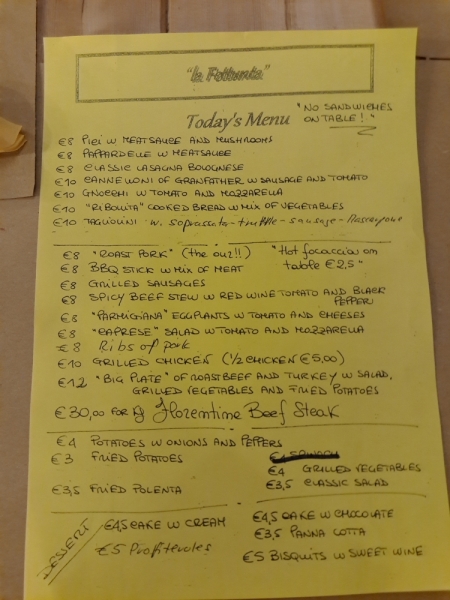 "la Fettunta"
Today's Menu
"NO SANDWICHES
ON TABLE!"
€8 Pici W MEATSAUCE AND MUSHROOMS
€8 PAPPARDELLE W MEATSAUCE
€8 CLASSIC LASAGNA BOLOGNESE
€10 CANNELLONI OF GRANFATHER W SAUSAGE AND TOMATO
€10 GNOCCHI W TOMATO AND MOZZARELLA
€10 "RIBOLLITA" COOKED BREAD W MIX OF VEGETABLES
€10 TAGLIOLINI w. soprassata-truffle-sausage-Mascarpone
€8 "ROAST PORK" (the our!!)
"Hot focaccia on
table €2,5"
€8 BBQ STICK W MIX OF MEAT
€8 GRILLED SAUSAGES
€8 SPICY BEEF STEW W RED WINE TOMATO AND BLACK
PEPPER
€8 "PARMIGIANA" EGGPLANTS W TOMATO AND CHEESES
€8 "CAPRESE" SALAD W TOMATO AND MOZZARELLA
€8 Ribs of pork
€10 GRILLED CHICKEN (1/2 CHICKEN €5,00)
€12 "BIG PLATE" OF ROASTBEEF AND TURKEY W SALAD,
GRILLED VEGETABLES AND FRIED POTATOES
€30,00 FOR Kg Florentine Beef Steak
€4 POTATOES W ONIONS AND PEPPERS
€3 FRIED POTATOES
€4 GRILLED VEGETABLES
€3,5 FRIED POLENTA
€3,5 CLASSIC SALAD
DESSERT
€4,5 CAKE W CREAM
€4,5 CAKE W CHOCOLATE
€5 Profiteroles
€3,5 PANNA COTTA
€5 BISQUITS W SWEET WINE